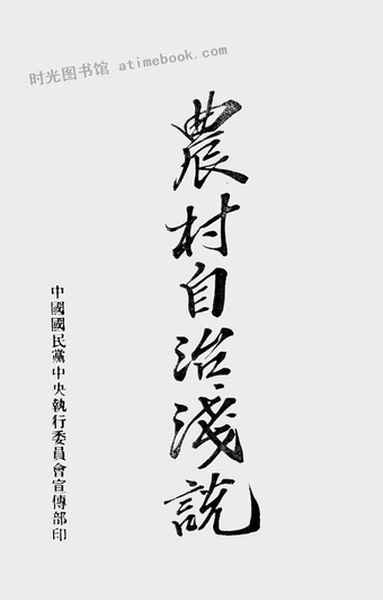 时光图书馆 atimebook.com
農村自治淺説
中國國民黨中央執行委員會宣傳部印